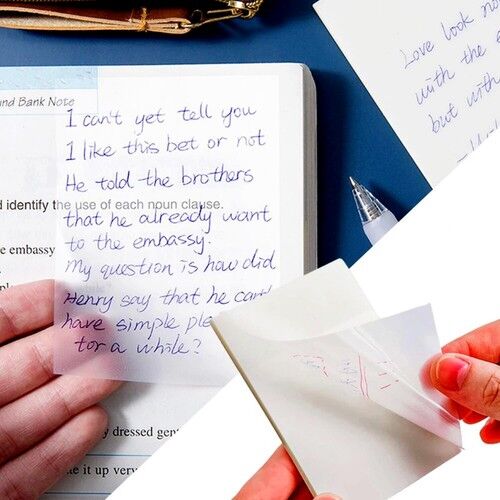 und Bank Note
I can't yet tell you
I like this bet or not
He told the brothers
identify the use of each noun clause.
that he already want
e embassy
to the embassy.
My question is how did
Henry say that he can't
have simple ple
for a while?
y dressed gen
e it up very
Love look no
with the e
but with